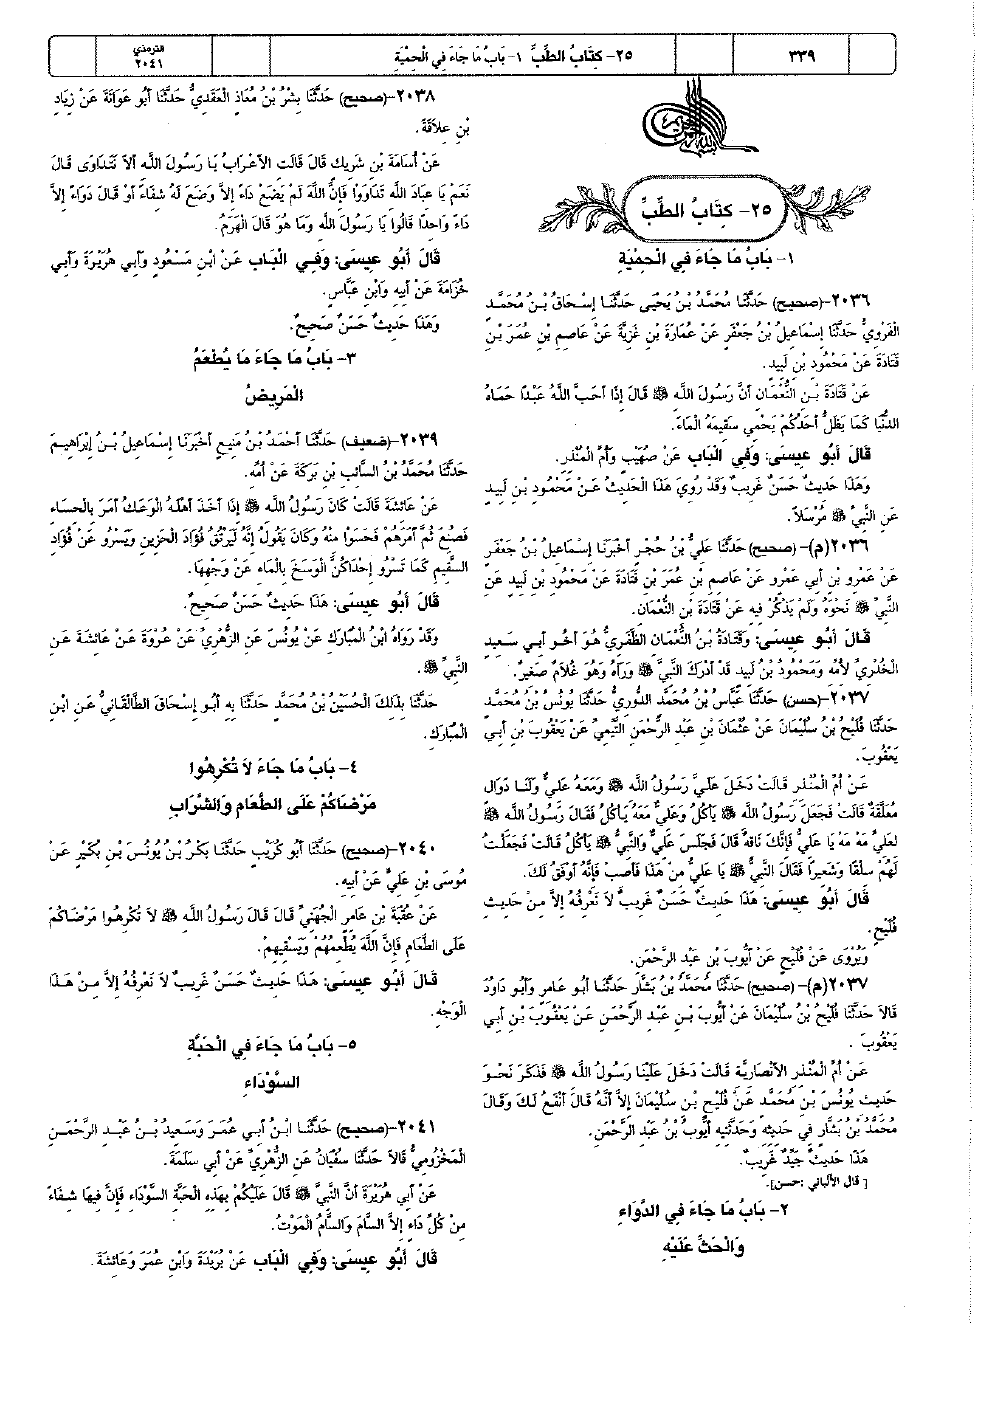 ٣٣٩
٢٥- كِتَابُ الطِّبِّ ١- بَابُ مَا جَاءَ فِي الْحِمْيَةِ
الترمذي
٢٠٤١
٢٥- كِتَابُ الطِّبِّ
١- بَابُ مَا جَاءَ فِي الْحِمْيَةِ
٢٠٣٦-(صحيح) حَدَّثَنَا مُحَمَّدُ بْنُ يَحْيَى حَدَّثَنَا إِسْحَاقُ بْنُ مُحَمَّدٍ
الْفَرْوِيُّ حَدَّثَنَا إِسْمَاعِيلُ بْنُ جَعْفَرٍ عَنْ عُمَارَةَ بْنِ غَزِيَّةَ عَنْ عَاصِمِ بْنِ عُمَرَ بْنِ
قَتَادَةَ عَنْ مَحْمُودِ بْنِ لَبِيدٍ.
عَنْ قَتَادَةَ بْنِ النُّعْمَانِ أَنَّ رَسُولَ اللَّهِ ﷺ قَالَ إِذَا أَحَبَّ اللَّهُ عَبْدًا حَمَاهُ
الدُّنْيَا كَمَا يَظَلُّ أَحَدُكُمْ يَحْمِي سَقِيمَهُ الْمَاءَ.
قَالَ أَبُو عِيسَى: وَفِي الْبَاب عَنْ صُهَيْبٍ وَأُمِّ الْمُنْذِرِ.
وَهَذَا حَدِيثٌ حَسَنٌ غَرِيبٌ وَقَدْ رُوِيَ هَذَا الْحَدِيثُ عَنْ مَحْمُودِ بْنِ لَبِيدٍ
عَنِ النَّبِيِّ ﷺ مُرْسَلاً.
٢٠٣٦(م)- (صحيح) حَدَّثَنَا عَلِيُّ بْنُ حُجْرٍ أَخْبَرَنَا إِسْمَاعِيلُ بْنُ جَعْفَرٍ
عَنْ عَمْرِو بْنِ أَبِي عَمْرٍو عَنْ عَاصِمِ بْنِ عُمَرَ بْنِ قَتَادَةَ عَنْ مَحْمُودِ بْنِ لَبِيدٍ عَنِ
النَّبِيِّ ﷺ نَحْوَهُ وَلَمْ يَذْكُرْ فِيهِ عَنْ قَتَادَةَ بْنِ النُّعْمَانِ.
قَالَ أَبُو عِيسَى: وَقَتَادَةُ بْنُ النُّعْمَانِ الظَّفَرِيُّ هُوَ أَخُو أَبِي سَعِيدٍ
الْخُدْرِيِّ لأُمِّهِ وَمَحْمُودُ بْنُ لَبِيدٍ قَدْ أَدْرَكَ النَّبِيَّ ﷺ وَرَآهُ وَهُوَ غُلاَمٌ صَغِيرٌ.
٢٠٣٧-(حسن) حَدَّثَنَا عَبَّاسُ بْنُ مُحَمَّدٍ الدُّورِيُّ حَدَّثَنَا يُونُسُ بْنُ مُحَمَّدٍ
حَدَّثَنَا فُلَيْحُ بْنُ سُلَيْمَانَ عَنْ عُثْمَانَ بْنِ عَبْدِ الرَّحْمَنِ التَّيْمِيِّ عَنْ يَعْقُوبَ بْنِ أَبِي
يَعْقُوبَ.
عَنْ أُمِّ الْمُنْذِرِ قَالَتْ دَخَلَ عَلَيَّ رَسُولُ اللَّهِ ﷺ وَمَعَهُ عَلِيٌّ وَلَنَا دَوَالٍ
مُعَلَّقَةٌ قَالَتْ فَجَعَلَ رَسُولُ اللَّهِ ﷺ يَأْكُلُ وَعَلِيٌّ مَعَهُ يَأْكُلُ فَقَالَ رَسُولُ اللَّهِ ﷺ
لِعَلِيٍّ مَهْ مَهْ يَا عَلِيُّ فَإِنَّكَ نَاقِهٌ قَالَ فَجَلَسَ عَلِيٌّ وَالنَّبِيُّ ﷺ يَأْكُلُ قَالَتْ فَجَعَلْتُ
لَهُمْ سِلْقًا وَشَعِيرًا فَقَالَ النَّبِيُّ ﷺ يَا عَلِيُّ مِنْ هَذَا فَأَصِبْ فَإِنَّهُ أَوْفَقُ لَكَ.
قَالَ أَبُو عِيسَى: هَذَا حَدِيثٌ حَسَنٌ غَرِيبٌ لاَ نَعْرِفُهُ إِلاَّ مِنْ حَدِيثِ
فُلَيْحٍ.
وَيُرْوَى عَنْ فُلَيْحٍ عَنْ أَيُّوبَ بْنِ عَبْدِ الرَّحْمَنِ.
٢٠٣٧(م)- (صحيح) حَدَّثَنَا مُحَمَّدُ بْنُ بَشَّارٍ حَدَّثَنَا أَبُو عَامِرٍ وَأَبُو دَاوُدَ
قَالاَ حَدَّثَنَا فُلَيْحُ بْنُ سُلَيْمَانَ عَنْ أَيُّوبَ بْنِ عَبْدِ الرَّحْمَنِ عَنْ يَعْقُوبَ بْنِ أَبِي
يَعْقُوبَ .
عَنْ أُمِّ الْمُنْذِرِ الأَنْصَارِيَّةِ قَالَتْ دَخَلَ عَلَيْنَا رَسُولُ اللَّهِ ﷺ فَذَكَرَ نَحْوَ
حَدِيثِ يُونُسَ بْنِ مُحَمَّدٍ عَنْ فُلَيْحِ بْنِ سُلَيْمَانَ إِلاَّ أَنَّهُ قَالَ أَنْفَعُ لَكَ وَقَالَ
مُحَمَّدُ بْنُ بَشَّارٍ فِي حَدِيثِهِ وَحَدَّثَنِيهِ أَيُّوبُ بْنُ عَبْدِ الرَّحْمَنِ.
هَذَا حَدِيثٌ جَيِّدٌ غَرِيبٌ.
[ قال الألباني :حسن].
٢- بَابُ مَا جَاءَ فِي الدَّوَاءِ
وَالْحَثِّ عَلَيْهِ
٢٠٣٨-(صحيح) حَدَّثَنَا بِشْرُ بْنُ مُعَاذٍ الْعَقَدِيُّ حَدَّثَنَا أَبُو عَوَانَةَ عَنْ زِيَادِ
بْنِ عِلاَقَةَ.
عَنْ أُسَامَةَ بْنِ شَرِيكٍ قَالَ قَالَتِ الأَعْرَابُ يَا رَسُولَ اللَّهِ أَلاَ نَتَدَاوَى قَالَ
نَعَمْ يَا عِبَادَ اللَّهِ تَدَاوَوْا فَإِنَّ اللَّهَ لَمْ يَضَعْ دَاءً إِلاَّ وَضَعَ لَهُ شِفَاءً أَوْ قَالَ دَوَاءً إِلاَّ
دَاءً وَاحِدًا قَالُوا يَا رَسُولَ اللَّهِ وَمَا هُوَ قَالَ الْهَرَمُ.
قَالَ أَبُو عِيسَى: وَفِي الْبَاب عَنْ ابْنِ مَسْعُودٍ وَأَبِي هُرَيْرَةَ وَأَبِي
خُزَامَةَ عَنْ أَبِيهِ وَابْنِ عَبَّاسٍ.
وَهَذَا حَدِيثٌ حَسَنٌ صَحِيحٌ.
٣- بَابُ مَا جَاءَ مَا يُطْعَمُ
الْمَرِيضُ
٢٠٣٩-(ضعيف) حَدَّثَنَا أَحْمَدُ بْنُ مَنِيعٍ أَخْبَرَنَا إِسْمَاعِيلُ بْنُ إِبْرَاهِيمَ
حَدَّثَنَا مُحَمَّدُ بْنُ السَّائِبِ بْنِ بَرَكَةَ عَنْ أُمِّهِ.
عَنْ عَائِشَةَ قَالَتْ كَانَ رَسُولُ اللَّهِ ﷺ إِذَا أَخَذَ أَهْلَهُ الْوَعَكُ أَمَرَ بِالْحِسَاءِ
فَصُنِعَ ثُمَّ أَمَرَهُمْ فَحَسَوْا مِنْهُ وَكَانَ يَقُولُ إِنَّهُ لَيَرْتُقُ فُؤَادَ الْحَزِينِ وَيَسْرُو عَنْ فُؤَادِ
السَّقِيمِ كَمَا تَسْرُو إِحْدَاكُنَّ الْوَسَخَ بِالْمَاءِ عَنْ وَجْهِهَا.
قَالَ أَبُو عِيسَى: هَذَا حَدِيثٌ حَسَنٌ صَحِيحٌ.
وَقَدْ رَوَاهُ ابْنُ الْمُبَارَكِ عَنْ يُونُسَ عَنِ الزُّهْرِيِّ عَنْ عُرْوَةَ عَنْ عَائِشَةَ عَنِ
النَّبِيِّ ﷺ.
حَدَّثَنَا بِذَلِكَ الْحُسَيْنُ بْنُ مُحَمَّدٍ حَدَّثَنَا بِهِ أَبُو إِسْحَاقَ الطَّالَقَانِيُّ عَنِ ابْنِ
الْمُبَارَكِ.
٤- بَابُ مَا جَاءَ لاَ تُكْرِهُوا
مَرْضَاكُمْ عَلَى الطَّعَامِ وَالشَّرَابِ
٢٠٤٠-(صحيح) حَدَّثَنَا أَبُو كُرَيْبٍ حَدَّثَنَا بَكْرُ بْنُ يُونُسَ بْنِ بُكَيْرٍ عَنْ
مُوسَى بْنِ عَلِيٍّ عَنْ أَبِيهِ.
عَنْ عُقْبَةَ بْنِ عَامِرٍ الْجُهَنِيِّ قَالَ قَالَ رَسُولُ اللَّهِ ﷺ لاَ تُكْرِهُوا مَرْضَاكُمْ
عَلَى الطَّعَامِ فَإِنَّ اللَّهَ يُطْعِمُهُمْ وَيَسْقِيهِمْ.
قَالَ أَبُو عِيسَى: هَذَا حَدِيثٌ حَسَنٌ غَرِيبٌ لاَ نَعْرِفُهُ إِلاَّ مِنْ هَذَا
الْوَجْهِ.
٥- بَابُ مَا جَاءَ فِي الْحَبَّةِ
السَّوْدَاءِ
٢٠٤١-(صحيح) حَدَّثَنَا ابْنُ أَبِي عُمَرَ وَسَعِيدُ بْنُ عَبْدِ الرَّحْمَنِ
الْمَخْزُومِيُّ قَالاَ حَدَّثَنَا سُفْيَانُ عَنِ الزُّهْرِيِّ عَنْ أَبِي سَلَمَةَ.
عَنْ أَبِي هُرَيْرَةَ أَنَّ النَّبِيَّ ﷺ قَالَ عَلَيْكُمْ بِهَذِهِ الْحَبَّةِ السَّوْدَاءِ فَإِنَّ فِيهَا شِفَاءً
مِنْ كُلِّ دَاءٍ إِلاَّ السَّامَ وَالسَّامُ الْمَوْتُ.
قَالَ أَبُو عِيسَى: وَفِي الْبَاب عَنْ بُرَيْدَةَ وَابْنِ عُمَرَ وَعَائِشَةَ.